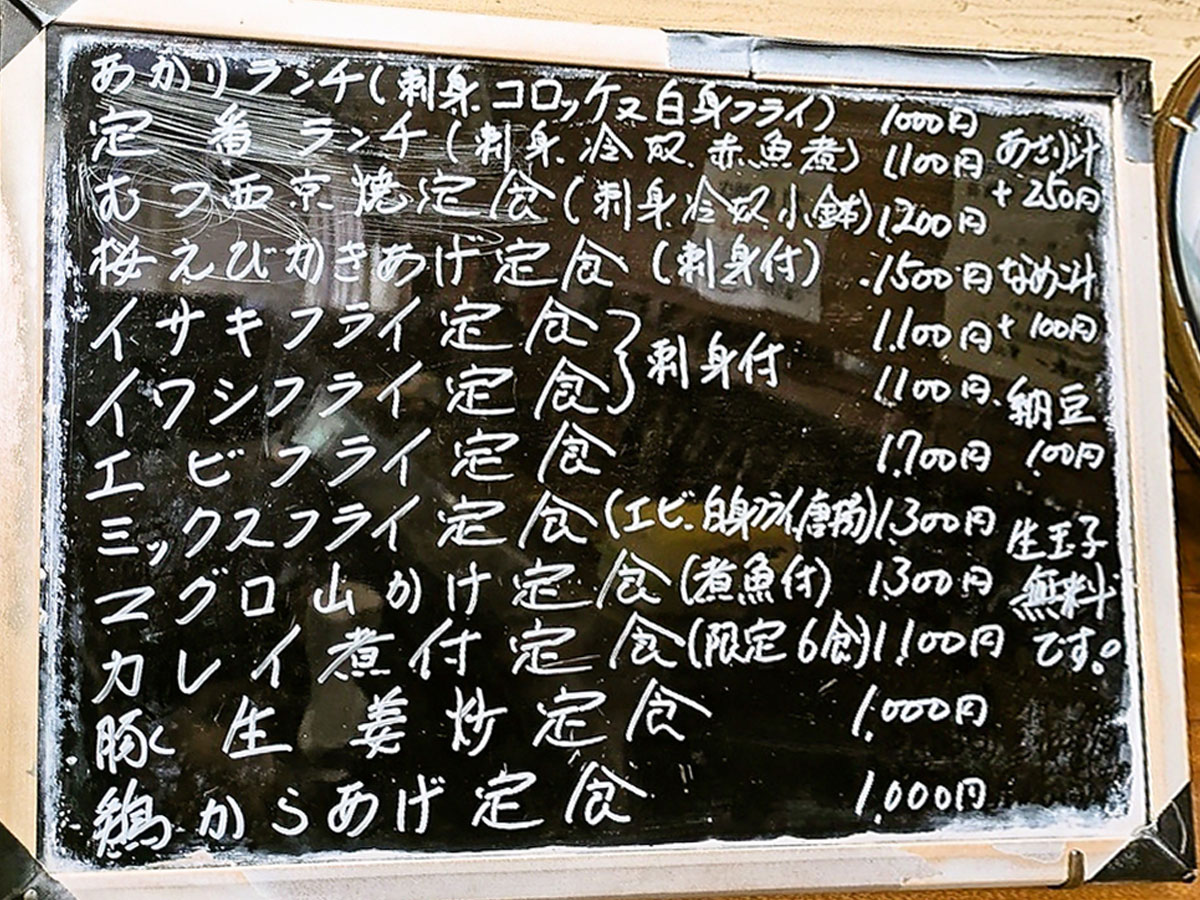 あかりランチ(刺身、コロッケ又白身フライ) 1000円
定番ランチ(刺身、冷奴、赤魚煮) 1,100円
むつ西京焼定食(刺身冷奴小鉢) 1,200円
桜えびかきあげ定食(刺身付) 1500円
イサキフライ定食 1,100円
刺身付
イワシフライ定食 1,100円
エビフライ定食 1,700円
ミックスフライ定食(エビ、白身フライ、唐揚) 1,300円
マグロ山かけ定食(煮魚付) 1300円
カレイ煮付定食(限定6食) 1,100円
豚生姜炒定食 1,000円
鶏からあげ定食 1,000円
あさり汁
+250円
なめこ汁
+100円
納豆
100円
生玉子
無料
です。